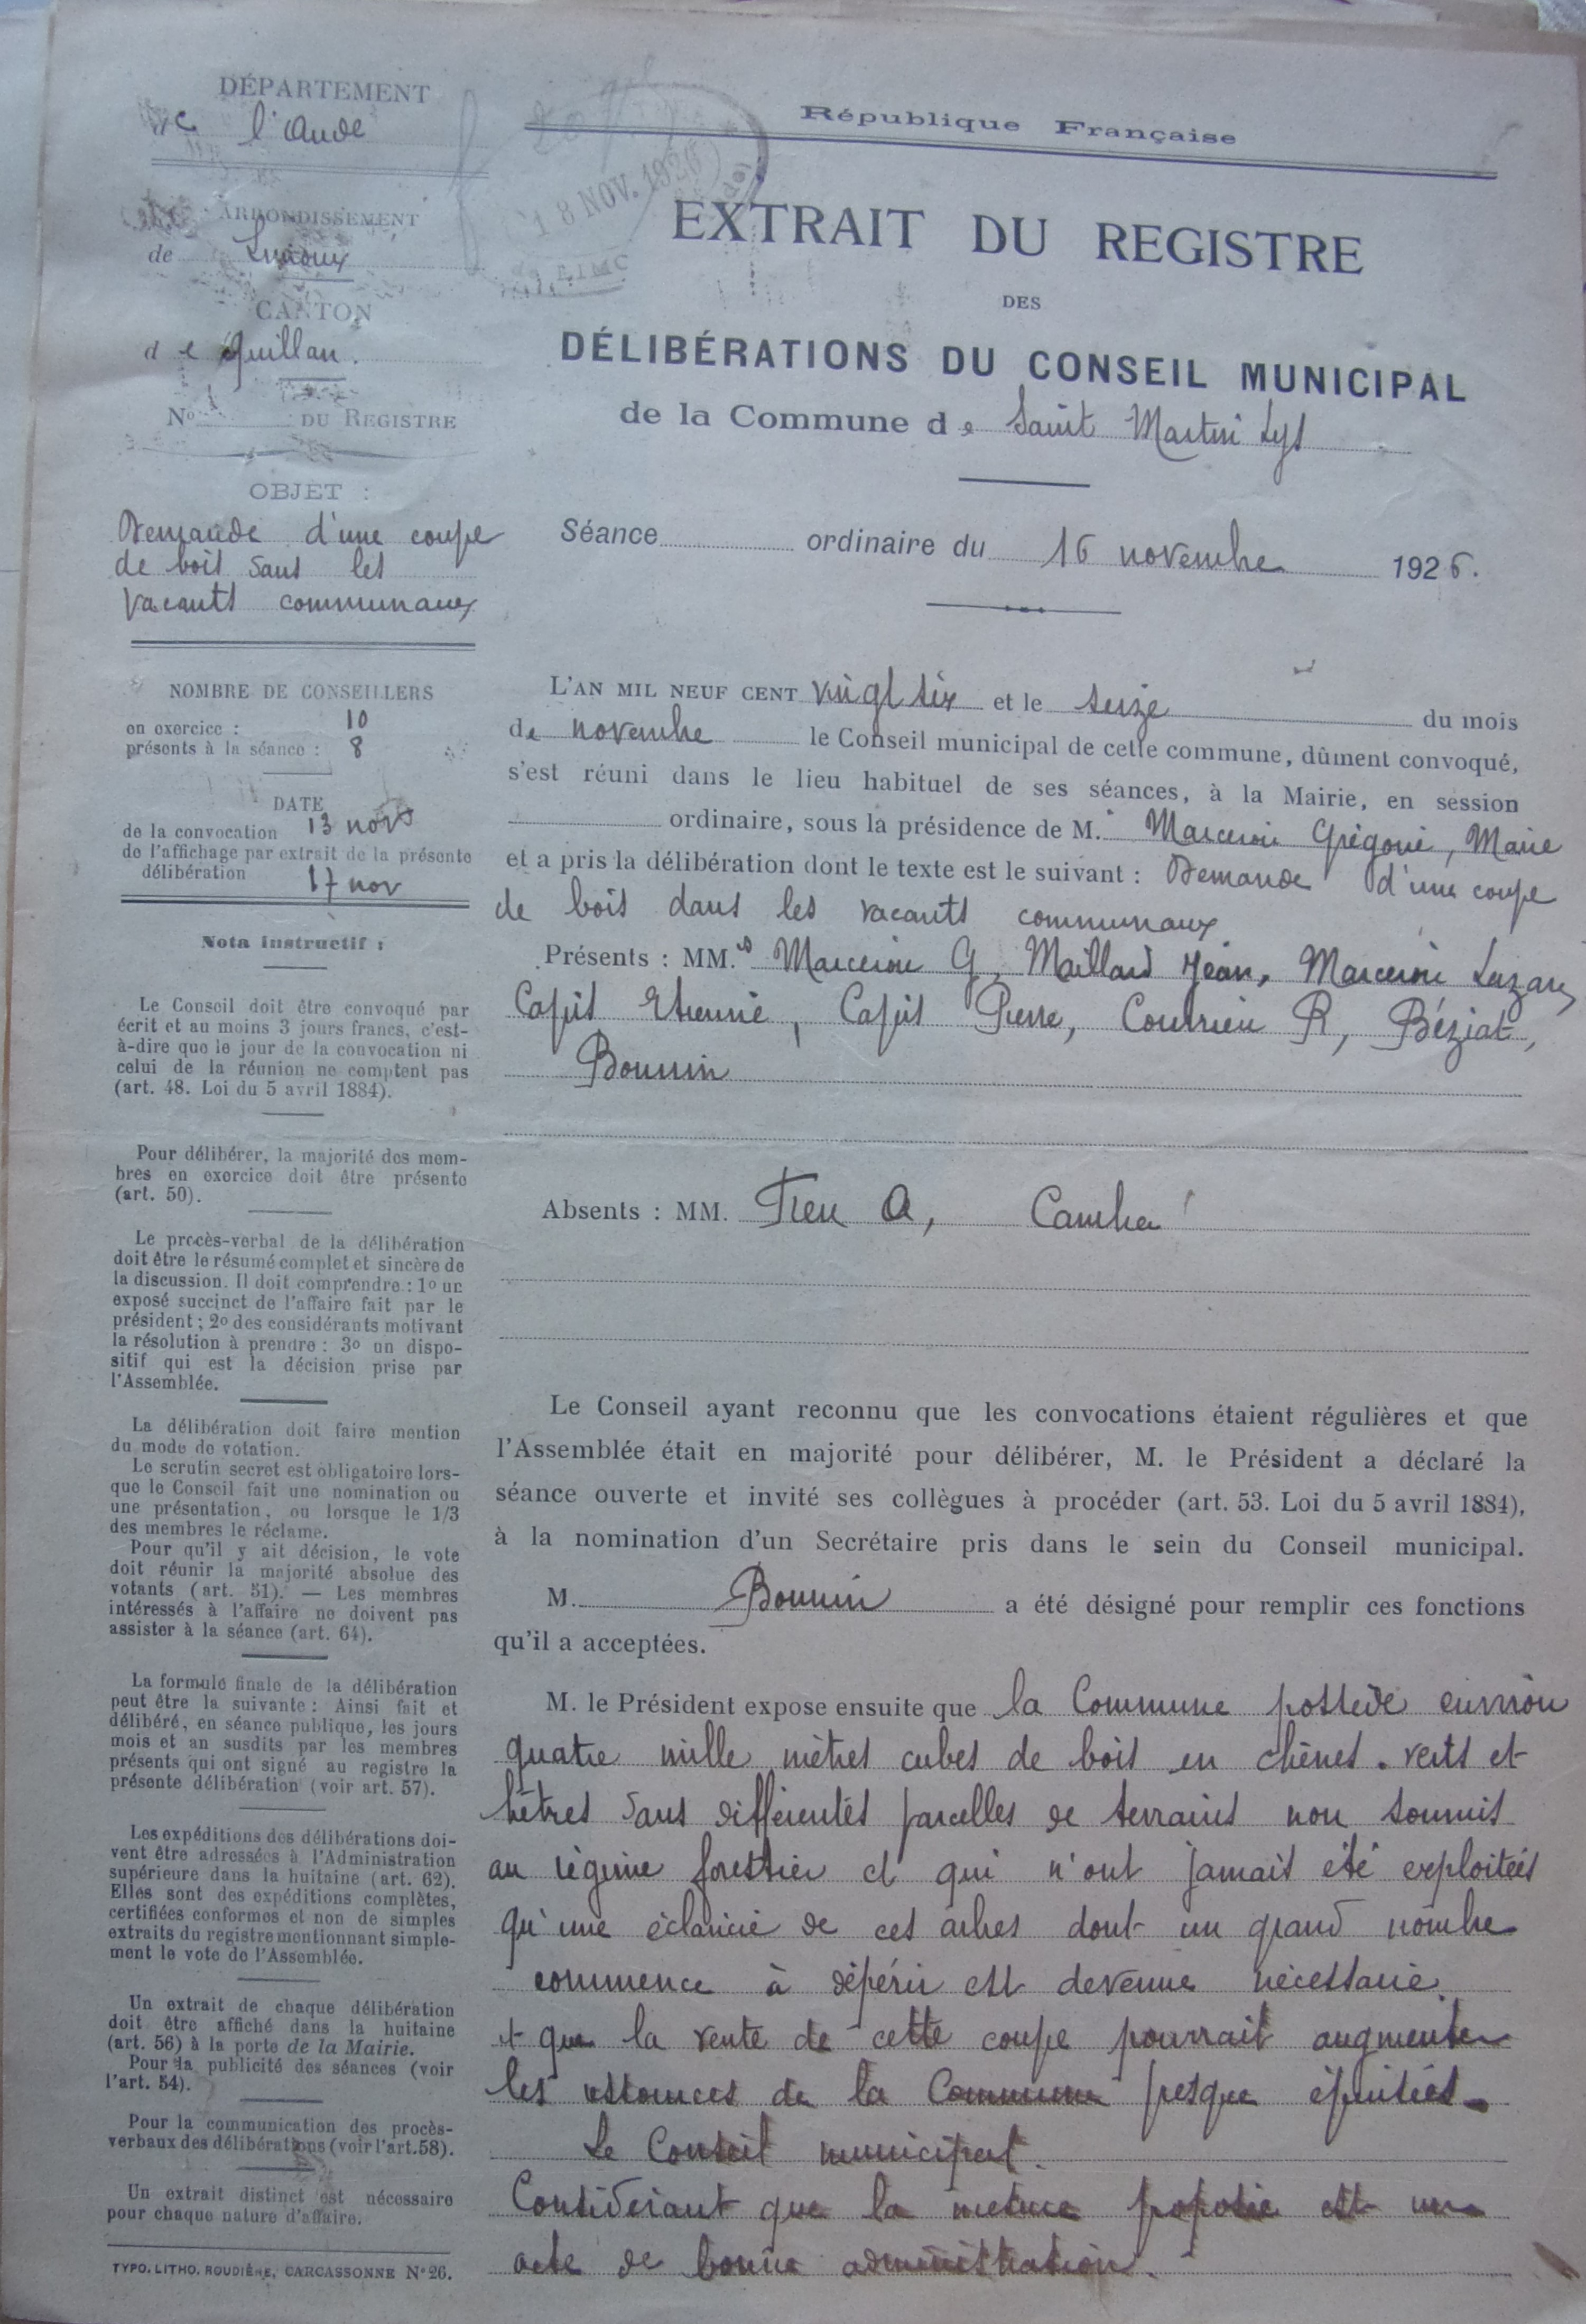 DÉPARTEMENT
de l'Aude
ARRONDISSEMENT
de Limoux
CANTON
de Quillan.
No DU REGISTRE
OBJET :
Demande d'une coupe
de bois dans les
vacants communaux
NOMBRE DE CONSEILLERS
en exercice : 10
présents à la séance : 8
DATE
de la convocation 13 nov
de l'affichage par extrait de la présente
délibération 17 nov
Nota instructif :
Le Conseil doit être convoqué par
écrit et au moins 3 jours francs, c'est-
à-dire que le jour de la convocation ni
celui de la réunion ne comptent pas
(art. 48. Loi du 5 avril 1884).
Pour délibérer, la majorité des mem-
bres en exercice doit être présente
(art. 50).
Le procès-verbal de la délibération
doit être le résumé complet et sincère de
la discussion. Il doit comprendre : 1o un
exposé succinct de l'affaire fait par le
président ; 2o des considérants motivant
la résolution à prendre : 3o un dispo-
sitif qui est la décision prise par
l'Assemblée.
La délibération doit faire mention
du mode de votation.
Le scrutin secret est obligatoire lors-
que le Conseil fait une nomination ou
une présentation, ou lorsque le 1/3
des membres le réclame.
Pour qu'il y ait décision, le vote
doit réunir la majorité absolue des
votants (art. 51). — Les membres
intéressés à l'affaire ne doivent pas
assister à la séance (art. 64).
La formule finale de la délibération
peut être la suivante : Ainsi fait et
délibéré, en séance publique, les jours
mois et an susdits par les membres
présents qui ont signé au registre la
présente délibération (voir art. 57).
Les expéditions des délibérations doi-
vent être adressées à l'Administration
supérieure dans la huitaine (art. 62).
Elles sont des expéditions complètes,
certifiées conformes et non de simples
extraits du registre mentionnant simple-
ment le vote de l'Assemblée.
Un extrait de chaque délibération
doit être affiché dans la huitaine
(art. 56) à la porte de la Mairie.
Pour la publicité des séances (voir
l'art. 54).
Pour la communication des procès-
verbaux des délibérations (voir l'art. 58).
Un extrait distinct est nécessaire
pour chaque nature d'affaire.
TYPO. LITHO. ROUDIÈRE, CARCASSONNE No 26.
18 NOV. 1926
République Française
EXTRAIT DU REGISTRE
DES
DÉLIBÉRATIONS DU CONSEIL MUNICIPAL
de la Commune de Saint Martin Lys
Séance ordinaire du 16 novembre 1926.
L'AN MIL NEUF CENT vingt six et le seize du mois
de novembre le Conseil municipal de cette commune, dûment convoqué,
s'est réuni dans le lieu habituel de ses séances, à la Mairie, en session
ordinaire, sous la présidence de M. Marceron Grégoire, Maire
et a pris la délibération dont le texte est le suivant : Demande d'une coupe
de bois dans les vacants communaux
Présents : MM. Marceron G, Maillard Jean, Marceron Lazare,
Capis Etienne, Capis Pierre, Courrieu R, Béziat,
Bounin
Absents : MM. Fieu A,
Le Conseil ayant reconnu que les convocations étaient régulières et que
l'Assemblée était en majorité pour délibérer, M. le Président a déclaré la
séance ouverte et invité ses collègues à procéder (art. 53. Loi du 5 avril 1884),
à la nomination d'un Secrétaire pris dans le sein du Conseil municipal.
M. Bounin a été désigné pour remplir ces fonctions
qu'il a acceptées.
M. le Président expose ensuite que la Commune possède environ
quatre mille mètres cubes de bois en chênes. verts et
hêtres dans différentes parcelles de terrains non soumis
au régime forestier et qui n'ont jamais été exploitées
qu'une éclaircie de ces arbres dont un grand nombre
commence à dépérir est devenue nécessaire.
et que la vente de cette coupe pourrait augmenter
les ressources de la Commune presque épuisées.
Le Conseil municipal.
Considérant que la mesure proposée est un
acte de bonne administration.